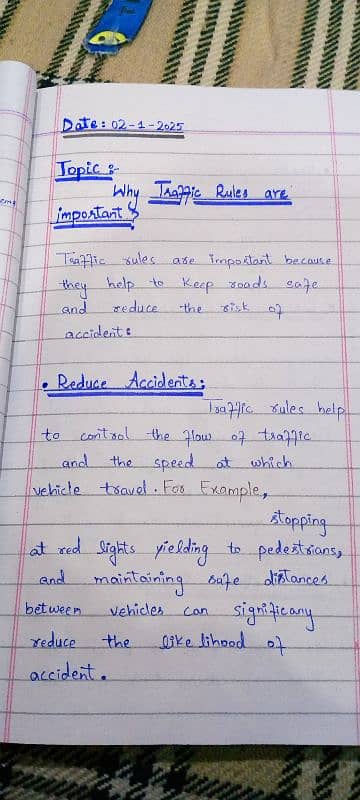 Date: 02-1-2025
Topic :-
Why Traffic Rules are
important ?
Traffic rules are important because
they help to keep roads safe
and reduce the risk of
accident:
• Reduce Accidents:
Traffic rules help
to control the flow of traffic
and the speed at which
vehicle travel. For Example,
stopping
at red lights yielding to pedestrians,
and maintaining safe distances
between vehicles can significany
reduce the like lihood of
accident.